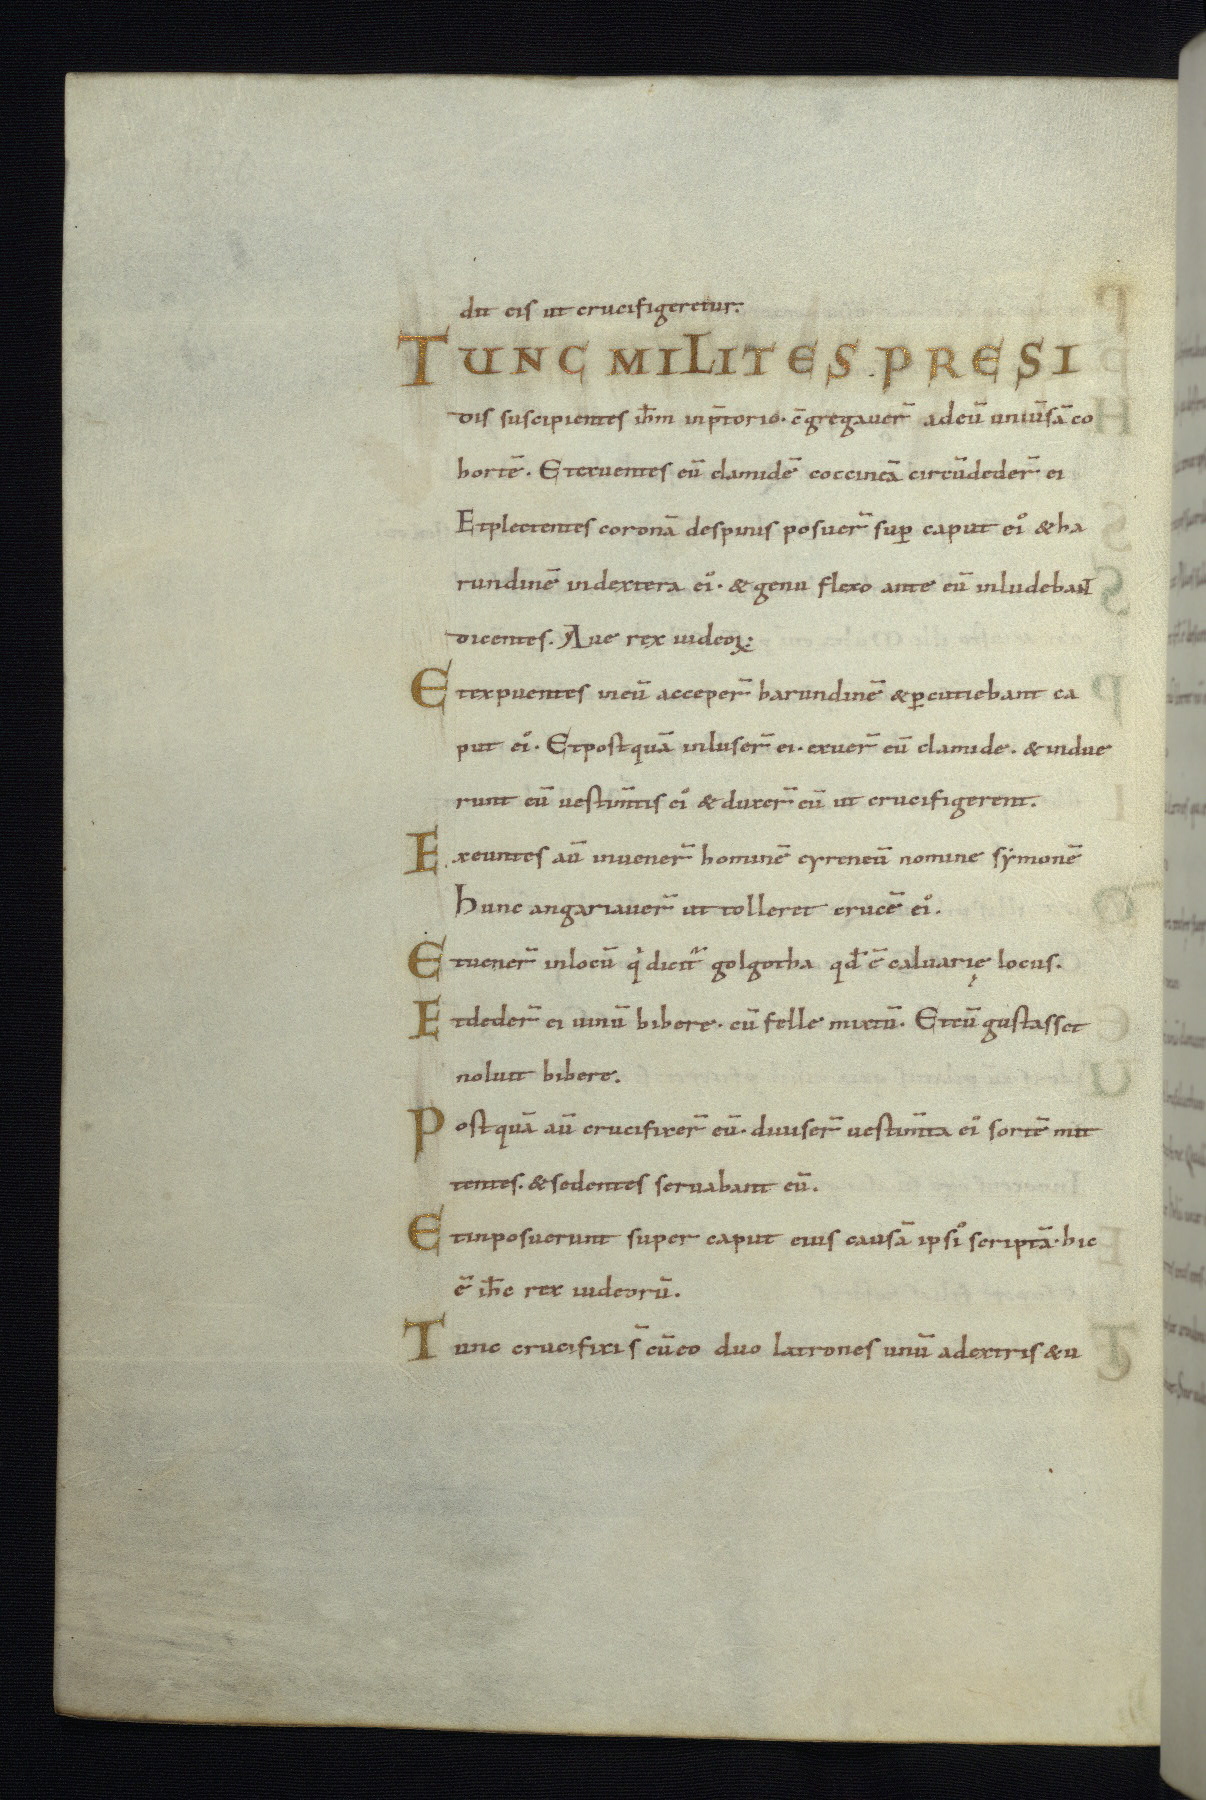 dit eis ut crucifigeretur:
TUNC MILITES PRESI
dis suscipientes ih̄m inp̄torio· c̄gregauer̄ adeū uniūsā co
hortē. Etexuentes eū clamidē coccineā circūdeder̄ ei
Etplectentes coronā despinis posuer̄ suꝑ caput eiꝰ & ha
rundinē indextera eiꝰ· & genu flexo ante eū inludebant
dicentes. Aue rex iudeoꝝ:
Etexpuentes ineū acceper̄ harundinē &ꝑcutiebant ca
put eiꝰ· Etpostquā inluser̄ ei· exuer̄ eū clamide. & indue
runt eū uestim̄tis eiꝰ & duxer̄ eū ut crucifigerent.
Exeuntes aū inuener̄ hominē cyreneū nomine symonē
Hunc angariauer̄ ut tolleret crucē eiꝰ.
Etuener̄ inlocū qͥ dicit᷒ golgotha qđ ē caluarię locus.
Etdeder̄ ei uinū bibere· cū felle mixtū. Etcū gustasset
noluit bibere.
Postquā aū crucifixer̄ eū· diuiser̄ uestim̄ta eiꝰ sortē mit
tentes. & sedentes seruabant eū.
Etinposuerunt super caput eius causā ipsiꝰ scriptā· hic
ē ih̄c rex iudeorū.
Tunc crucifixi s̄ cūeo duo latrones unū adextris & u